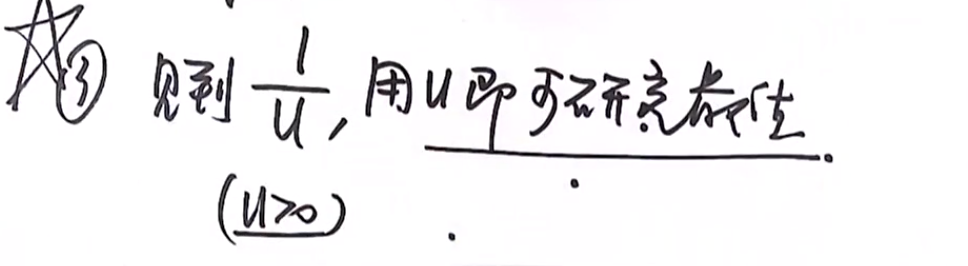 ☆③ 见到 1/u, 用u即可研究奇偶性.
(u>0)